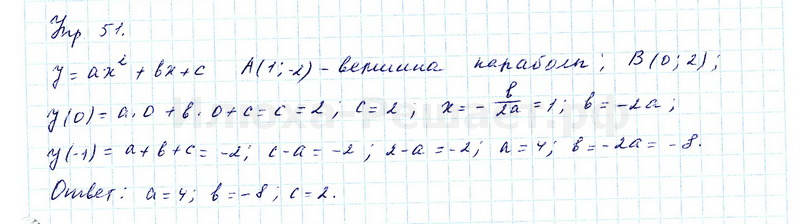 Упр 51.
y = ax² + bx + c A(1; -2) - вершина параболы; B(0; 2);
y(0) = a·0 + b·0 + c = c = 2; c = 2; x = - b/2a = 1; b = -2a;
y(-1) = a + b + c = -2; c - a = -2; 2 - a = -2; a = 4; b = -2a = -8.
Ответ: a = 4; b = -8; c = 2.